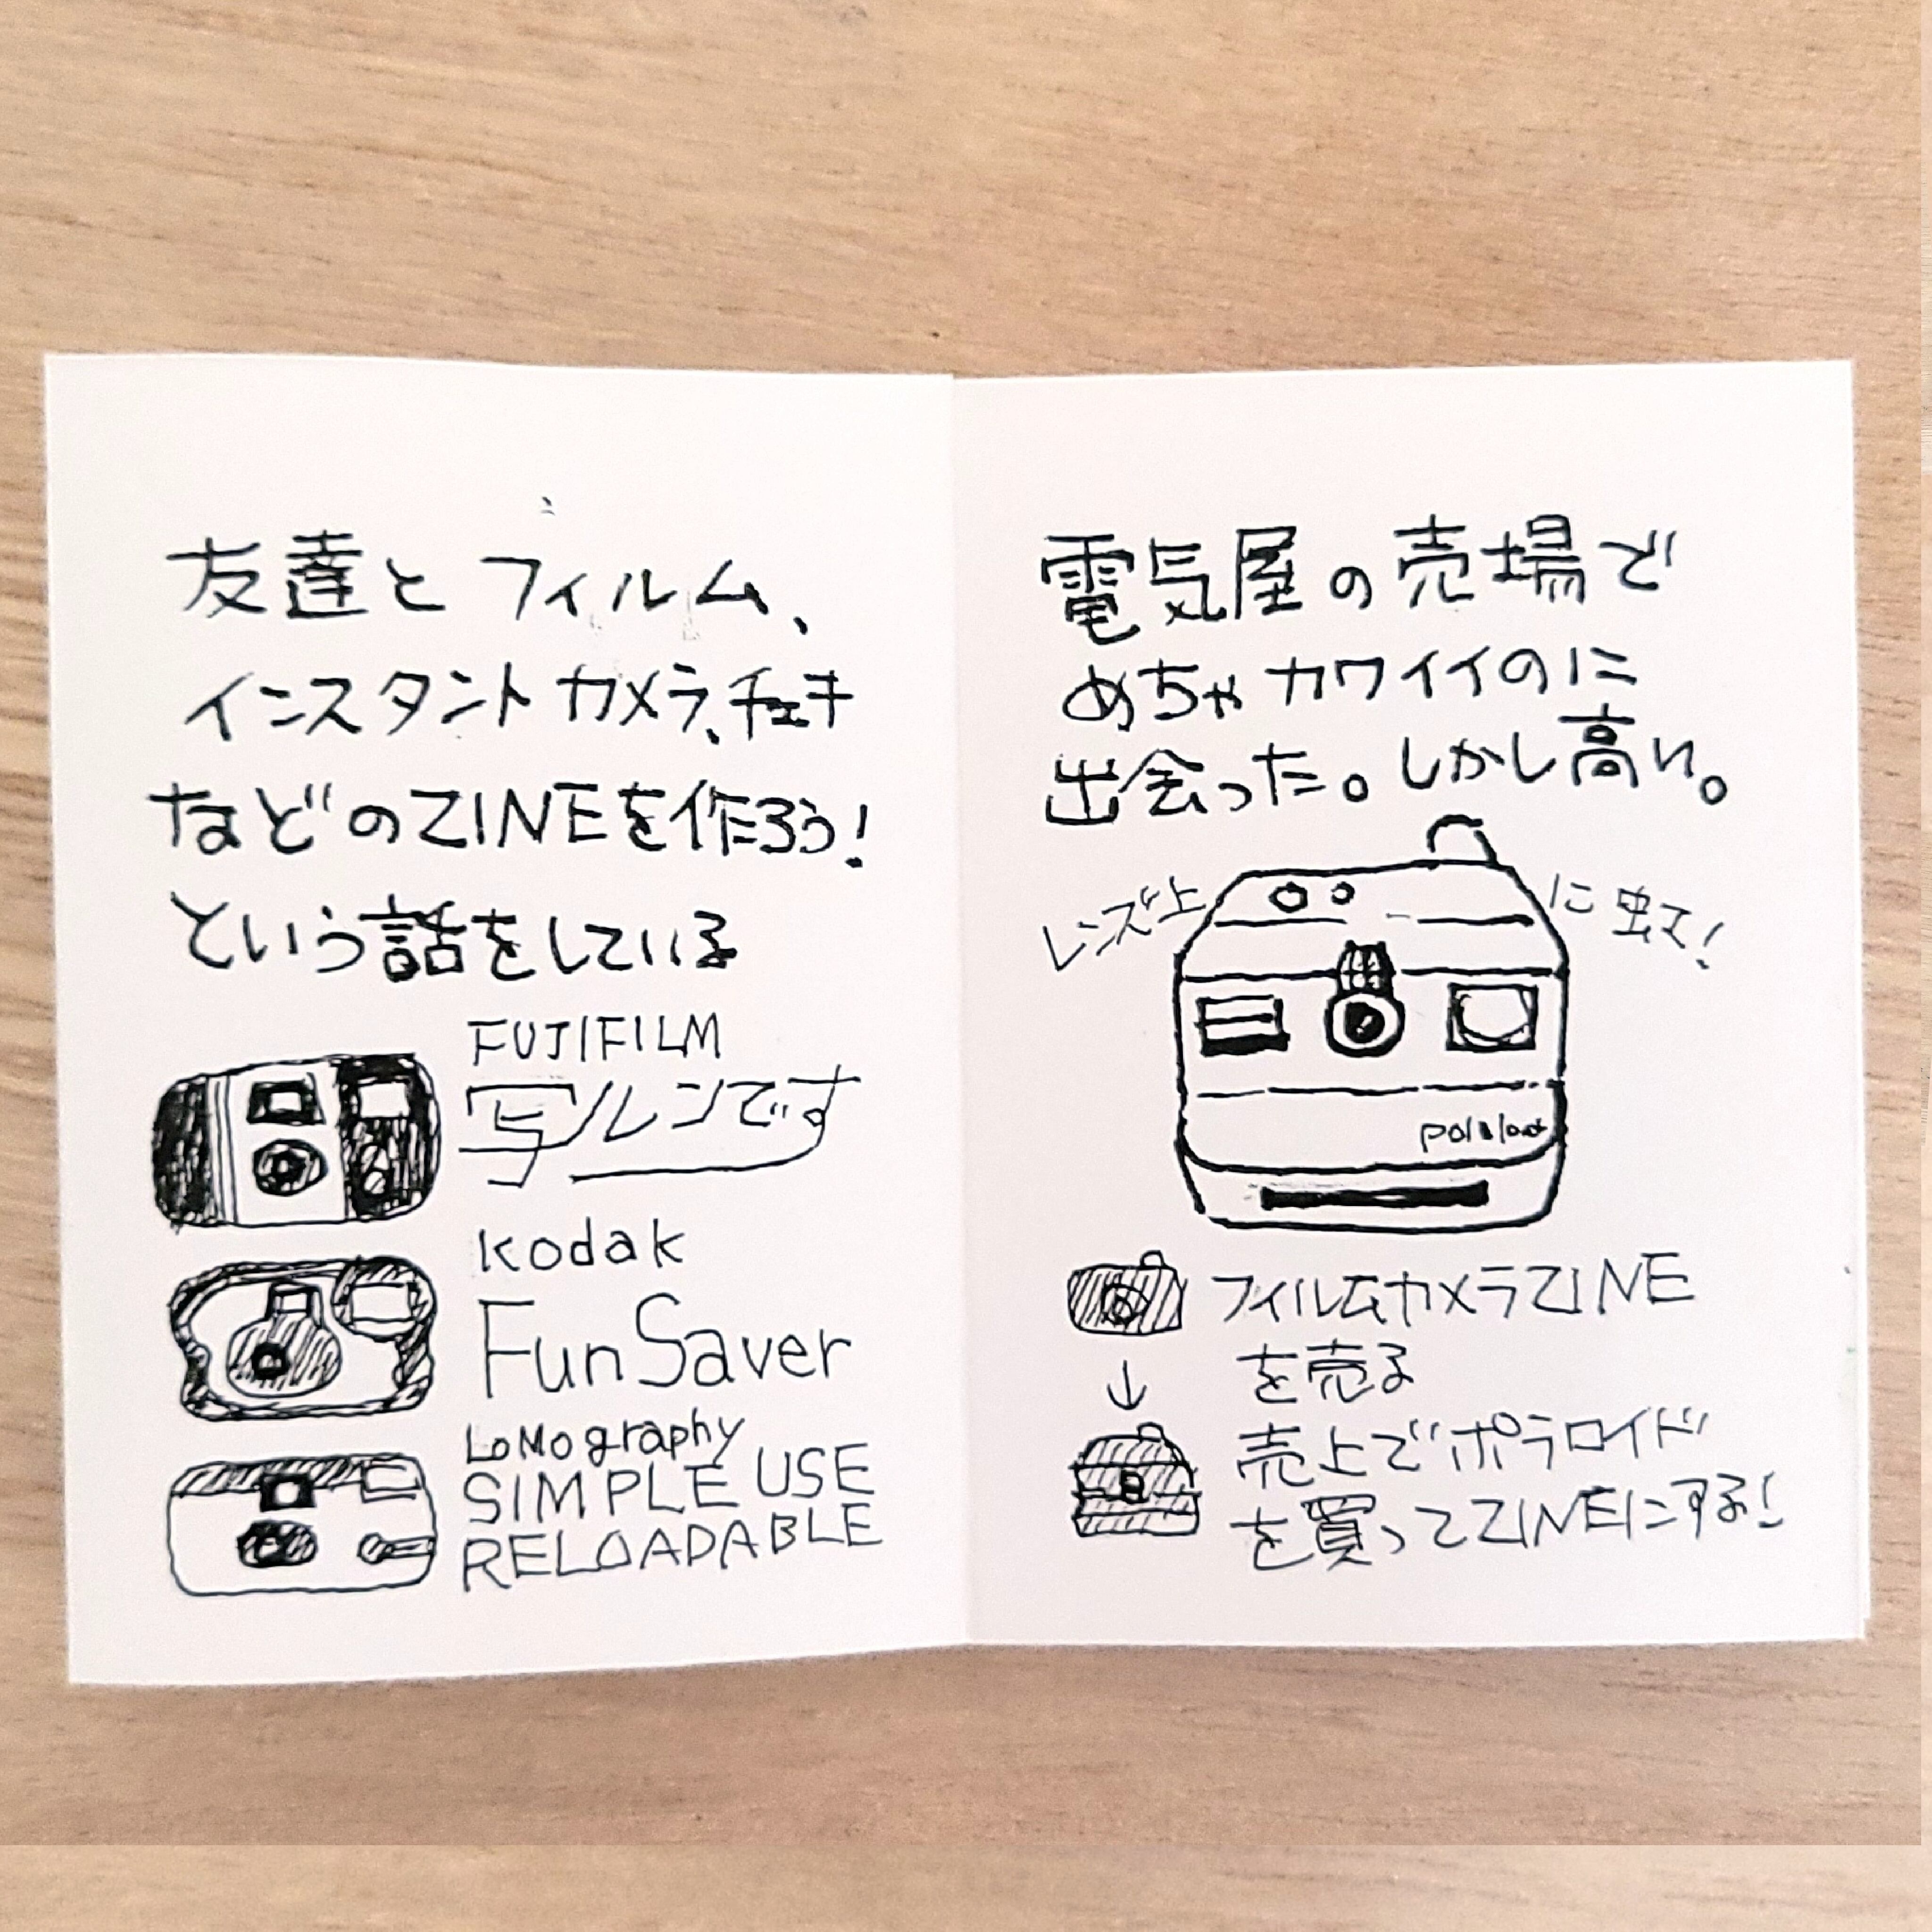 友達とフィルム、
インスタントカメラ、チェキ
などのZINEを作ろう!
という話をしている
FUJIFILM
写ルンです
kodak
FunSaver
LoMography
SIMPLE USE
RELOADABLE
電気屋の売場で
めちゃカワイイのに
出会った。しかし高い。
レンズ上に虹!
フィルムカメラZINE
を売る
↓
売上でポラロイド
を買ってZINEにする!